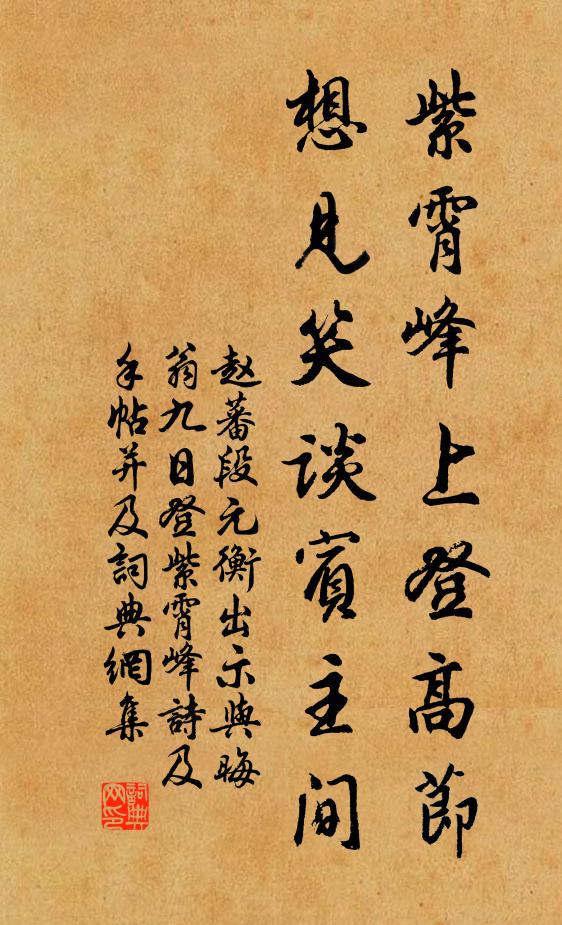 紫霄峰上登高節
想見笑談賓主间
赵蕃段元衡出示與晦
翁九日登紫霄峰詩及
手帖并及詞典網集
詞典网印